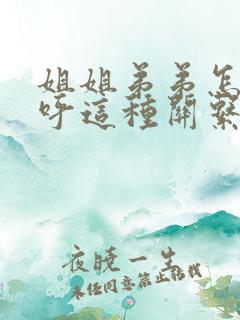 姐姐弟弟怎
呼這種關繫
夜曉一生
未经同意禁止转载